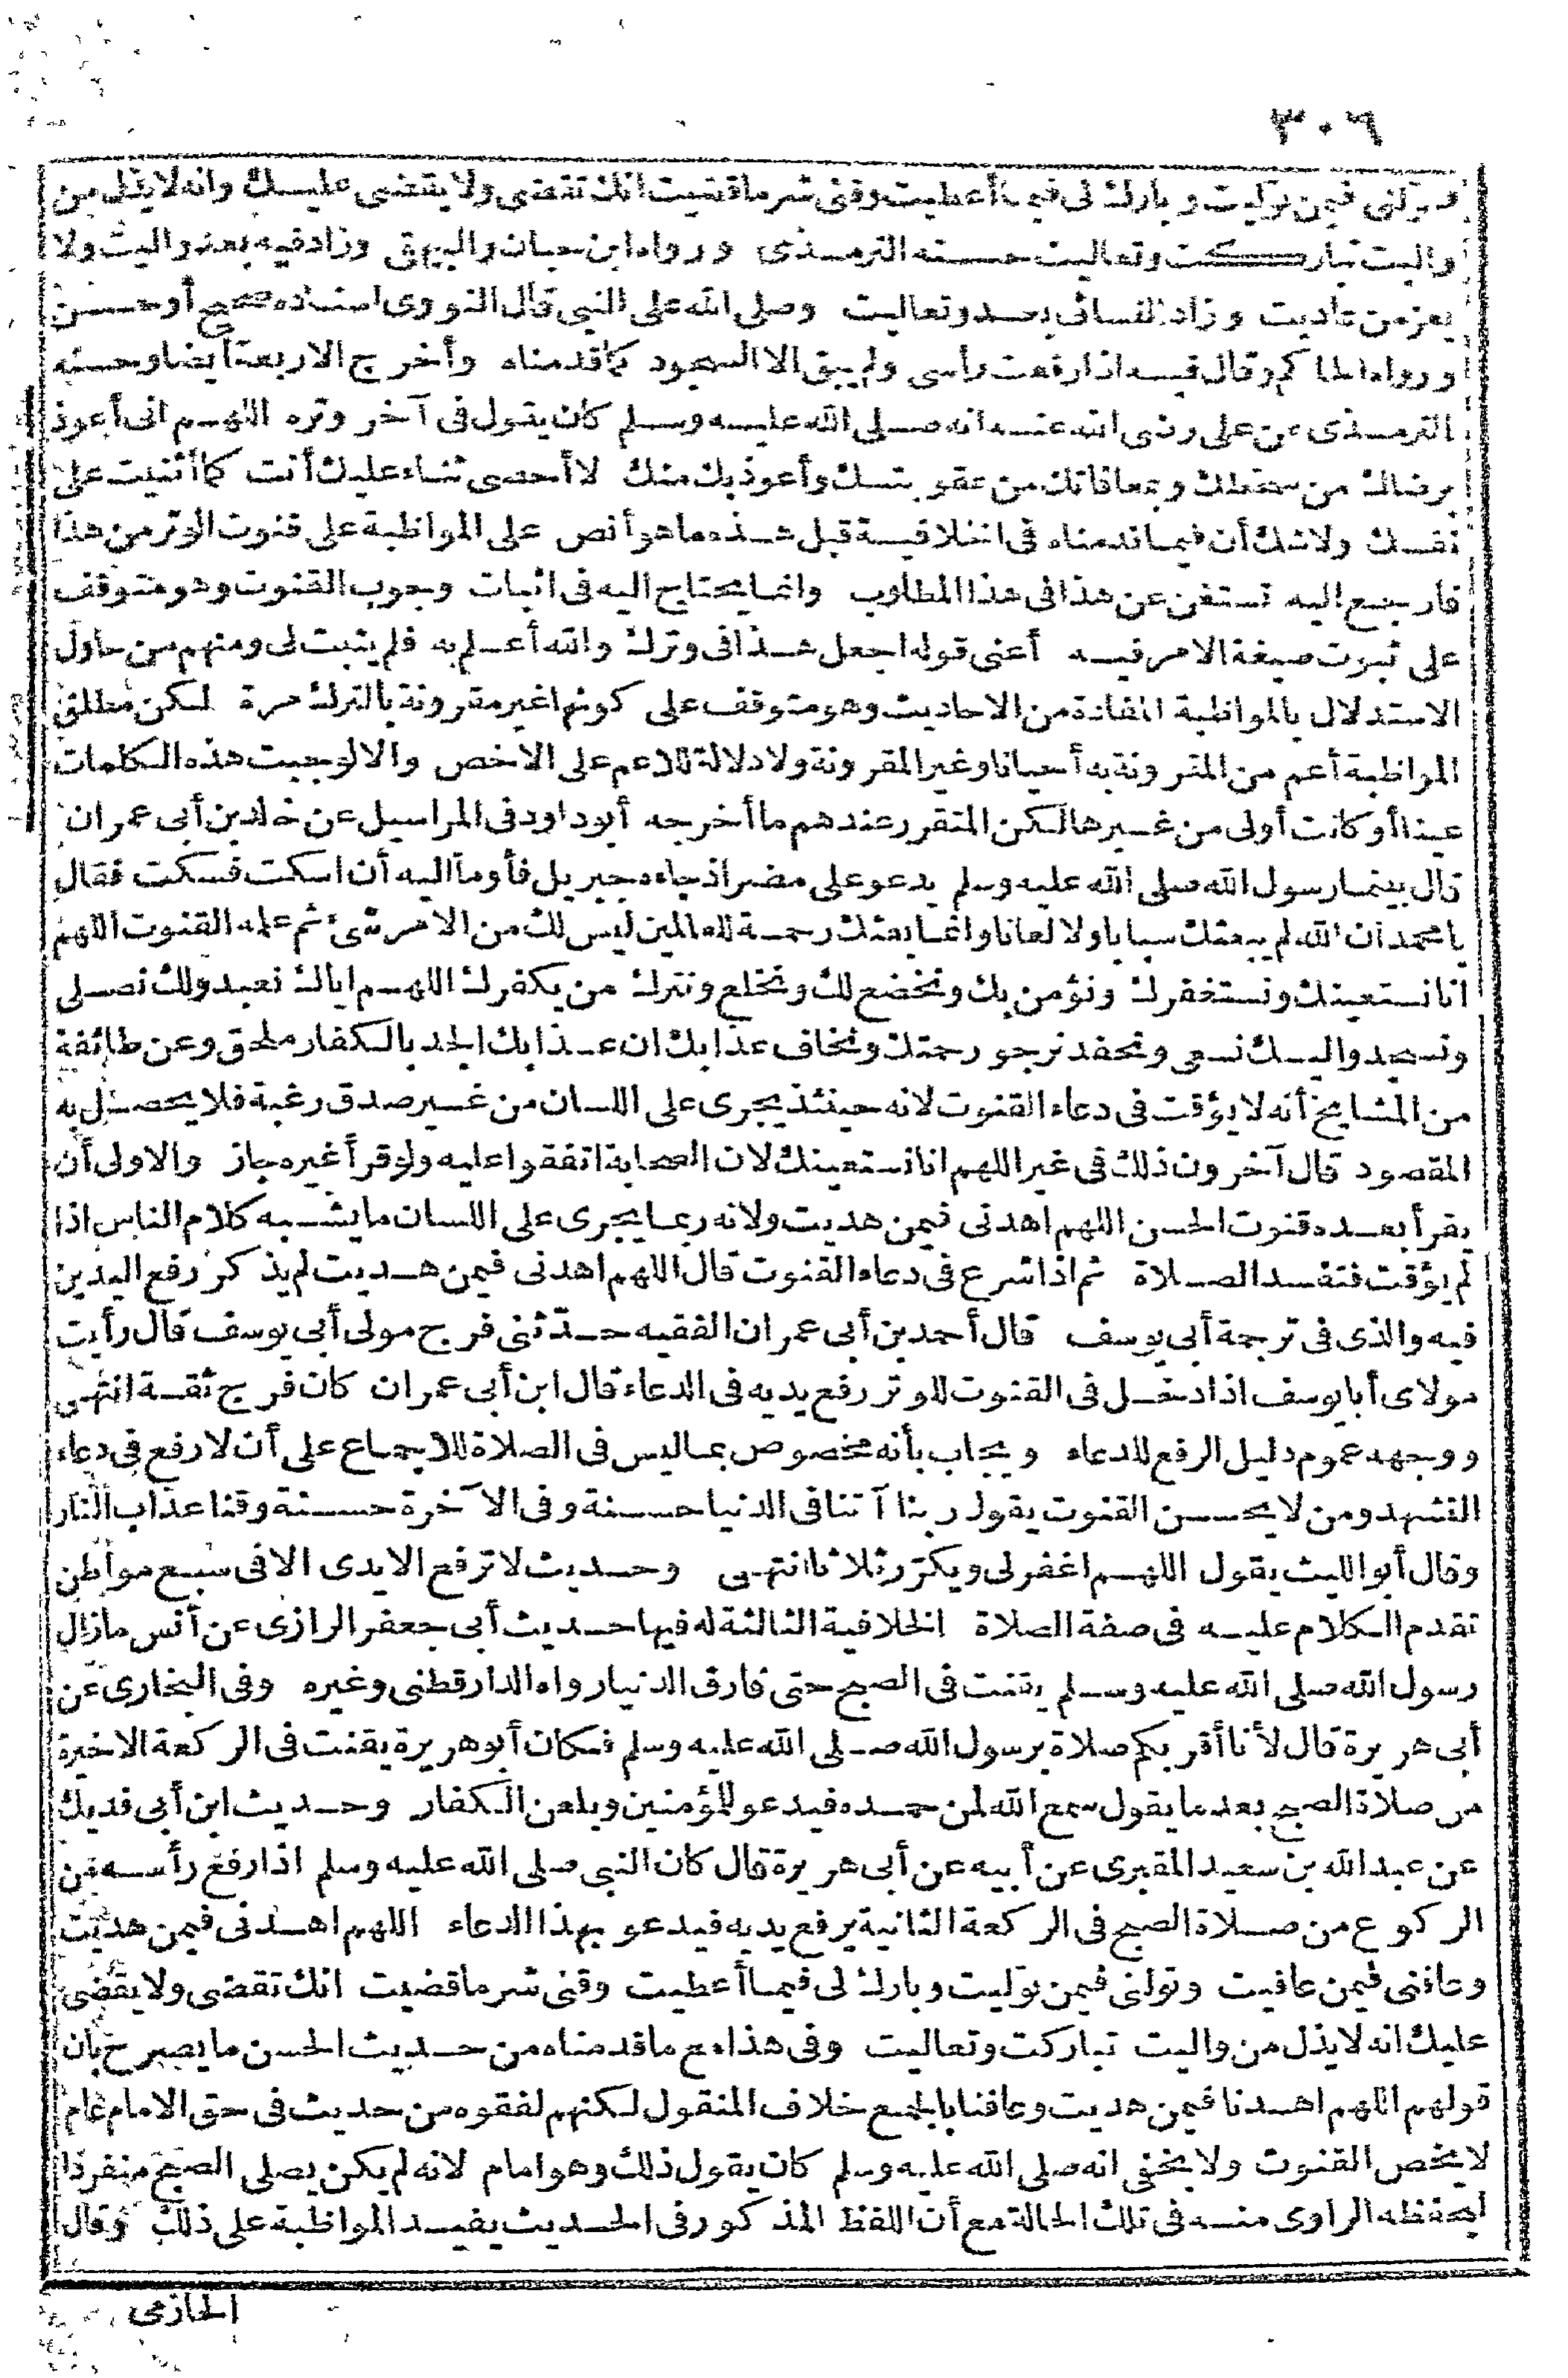 ٣٠٦
وتولنى فيمن توليت وبارك لى فيما أعطيت وقنى شر ما قضيت انك تقضى ولا يقضى عليك وانه لا يذل من
واليت تباركت وتعاليت حسنه الترمذى ورواه ابن حبان والبيهقى وزاد فيه بعد واليت ولا
يعز من عاديت وزاد النسائى بعد وتعاليت وصلى الله على النبى قال النووى اسناده صحيح أو حسن
ورواه الحاكم وقال فيه اذا رفعت رأسى ولم يبق الا السجود كما قدمناه وأخرج الاربعة أيضا وحسنه
الترمذى عن على رضى الله عنه انه صلى الله عليه وسلم كان يقول فى آخر وتره اللهم انى أعوذ
برضاك من سخطك وبمعافاتك من عقوبتك وأعوذ بك منك لا أحصى ثناء عليك أنت كما أثنيت على
نفسك ولا شك أن فيما قدمناه فى الخلافية قبل هذه ما هو أنص على المواظبة على قنوت الوتر من هذا
فارجع اليه تستغن عن هذا فى هذا المطلوب وانما يحتاج اليه فى اثبات وجوب القنوت وهو متوقف
على ثبوت صيغة الامر فيه أعنى قوله اجعل هذا فى وترك والله أعلم به فلم يثبت لى ومنهم من حاول
الاستدلال بالمواظبة المفادة من الاحاديث وهو متوقف على كونها غير مقرونة بالترك مرة لكن مطلق
المواظبة أعم من المقرونة به أحيانا وغير المقرونة ولا دلالة للاعم على الاخص والا لوجبت هذه الكلمات
عينا أو كانت أولى من غيرها لكن المتقرر عندهم ما أخرجه أبو داود فى المراسيل عن خالد بن أبى عمران
قال بينما رسول الله صلى الله عليه وسلم يدعو على مضر اذ جاءه جبريل فأومأ اليه أن اسكت فسكت فقال
يا محمد ان الله لم يبعثك سبابا ولا لعانا وانما بعثك رحمة للعالمين ليس لك من الامر شئ ثم علمه القنوت اللهم
انا نستعينك ونستغفرك ونؤمن بك ونخضع لك ونخلع ونترك من يكفرك اللهم اياك نعبد ولك نصلى
ونسجد واليك نسعى ونحفد نرجو رحمتك ونخاف عذابك ان عذابك الجد بالكفار ملحق وعن طائفة
من المشايخ أنه لا يؤقت فى دعاء القنوت لانه حينئذ يجرى على اللسان من غير صدق رغبة فلا يحصل به
المقصود قال آخرون ذلك فى غير اللهم انا نستعينك لان الصحابة اتفقوا عليه ولو قرأ غيره جاز والاولى أن
يقرأ بعده قنوت الحسن اللهم اهدنى فيمن هديت ولانه ربما يجرى على اللسان ما يشبه كلام الناس اذا
لم يؤقت فتفسد الصلاة ثم اذا شرع فى دعاء القنوت قال اللهم اهدنى فيمن هديت لم يذكر رفع اليدين
فيه والذى فى ترجمة أبى يوسف قال أحمد بن أبى عمران الفقيه حدّثنى فرج مولى أبى يوسف قال رأيت
مولاى أبا يوسف اذا دخل فى القنوت للوتر رفع يديه فى الدعاء قال ابن أبى عمران كان فرج ثقة انتهى
ووجهه عموم دليل الرفع للدعاء ويجاب بأنه مخصوص بما ليس فى الصلاة للاجماع على أن لا رفع فى دعاء
التشهد ومن لا يحسن القنوت يقول ربنا آتنا فى الدنيا حسنة وفى الآخرة حسنة وقنا عذاب النار
وقال أبو الليث يقول اللهم اغفر لى ويكرّر ثلاثا انتهى وحديث لا ترفع الايدى الا فى سبع مواطن
تقدم الكلام عليه فى صفة الصلاة الخلافية الثالثة له فيها حديث أبى جعفر الرازى عن أنس ما زال
رسول الله صلى الله عليه وسلم يقنت فى الصبح حتى فارق الدنيا رواه الدارقطنى وغيره وفى البخارى عن
أبى هريرة قال لأنا أقربكم صلاة برسول الله صلى الله عليه وسلم فكان أبو هريرة يقنت فى الركعة الاخيرة
من صلاة الصبح بعد ما يقول سمع الله لمن حمده فيدعو للمؤمنين ويلعن الكفار وحديث ابن أبى فديك
عن عبد الله بن سعيد المقبرى عن أبيه عن أبى هريرة قال كان النبى صلى الله عليه وسلم اذا رفع رأسه من
الركوع من صلاة الصبح فى الركعة الثانية يرفع يديه فيدعو بهذا الدعاء اللهم اهدنى فيمن هديت
وعافنى فيمن عافيت وتولنى فيمن توليت وبارك لى فيما أعطيت وقنى شر ما قضيت انك تقضى ولا يقضى
عليك انه لا يذل من واليت تباركت وتعاليت وفى هذا مع ما قدمناه من حديث الحسن ما يصرح بان
قولهم اللهم اهدنا فيمن هديت وعافنا بالجمع خلاف المنقول لكنهم لفقوه من حديث فى حق الامام عام
لا يخص القنوت ولا يخفى انه صلى الله عليه وسلم كان يقول ذلك وهو امام لانه لم يكن يصلى الصبح منفردا
ليحفظه الراوى منه فى تلك الحالة مع أن اللفظ المذكور فى الحديث يفيد المواظبة على ذلك وقال
الحازمى